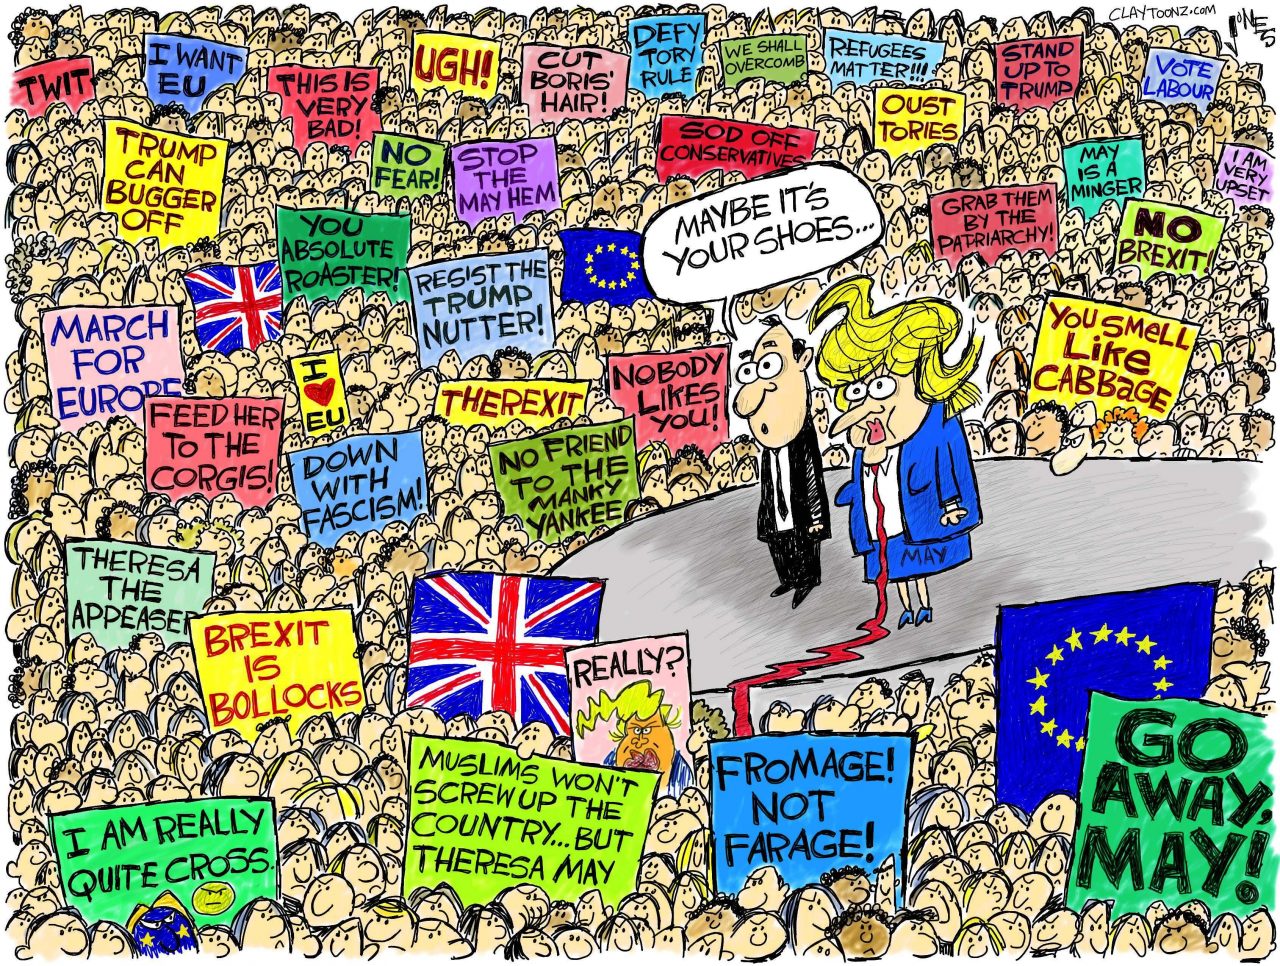 CLAYTOONZ.COM
JONES
TWIT
I WANT
EU
THIS IS
VERY
BAD!
UGH!
CUT
BORIS'
HAIR!
DEFY
TORY
RULE
WE SHALL
OVERCOMB
REFUGEES
MATTER!!!
STAND
UP TO
TRUMP
VOTE
LABOUR
OUST
TORIES
TRUMP
CAN
BUGGER
OFF
NO
FEAR!
STOP
THE
MAYHEM
SOD OFF
CONSERVATIVES
MAY
IS A
MINGER
I AM
VERY
UPSET
YOU
ABSOLUTE
ROASTER!
MAYBE IT'S
YOUR SHOES...
GRAB THEM
BY THE
PATRIARCHY!
NO
BREXIT!
RESIST THE
TRUMP
NUTTER!
MARCH
FOR
EUROPE
I
EU
THEREXIT
NOBODY
LIKES
YOU!
YOU SMELL
LiKE
CABBAGE
FEED HER
TO THE
CORGIS!
DOWN
WITH
FASCISM!
NO FRIEND
TO THE
MANKY
YANKEE
MAY
THERESA
THE
APPEASER
BREXIT
IS
BOLLOCKS
REALLY?
I AM REALLY
QUITE CROSS.
MUSLIMS WON'T
SCREW UP THE
COUNTRY...BUT
THERESA MAY
FROMAGE!
NOT
FARAGE!
GO
AWAY,
MAY!